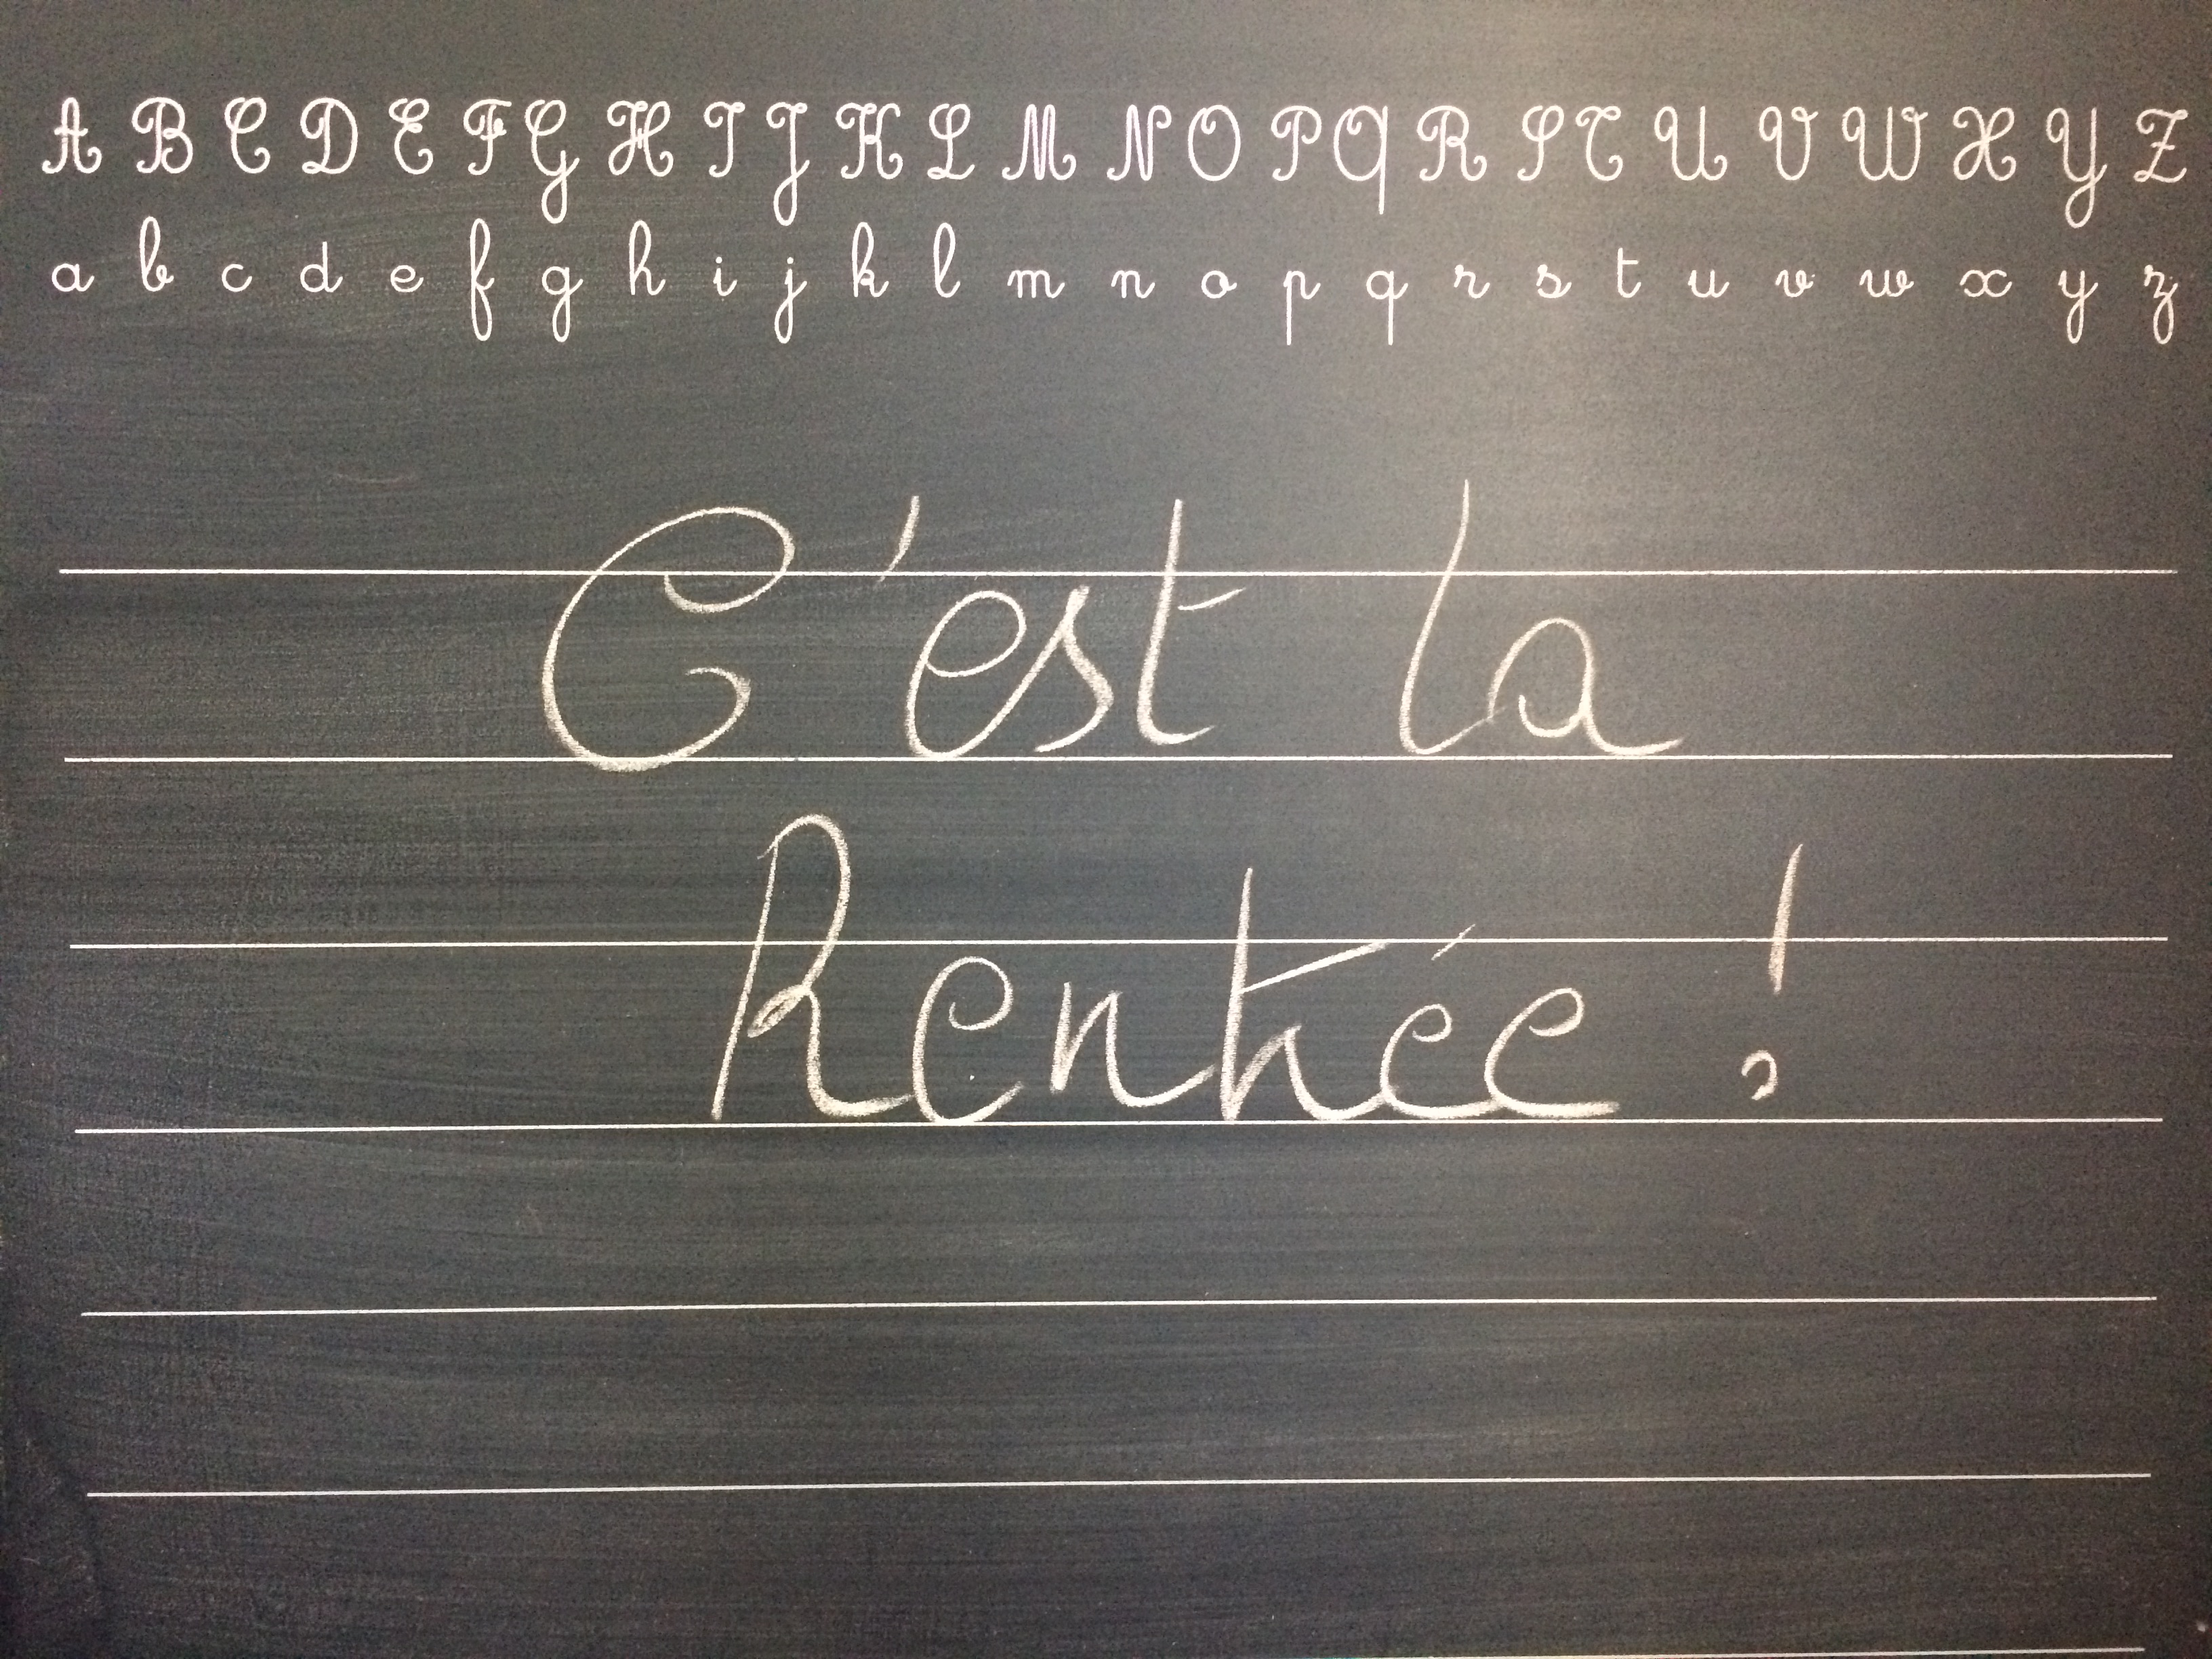 A B C D E F G H I J K L M N O P Q R S T U V W X Y Z
a b c d e f g h i j k l m n o p q r s t u v w x y z
C'est la
Rentrée !